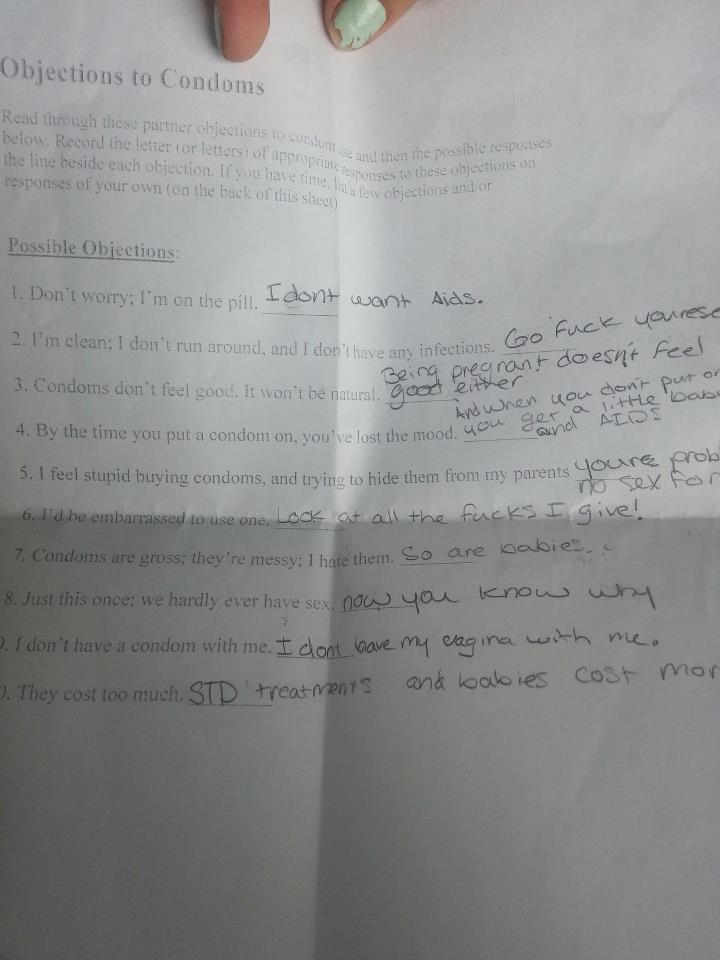 Objections to Condoms
Read through these partner objections to condom use and then the possible responses
below. Record the letter (or letters) of appropriate responses to these objections on
the line beside each objection. If you have time, list a few objections and/or
responses of your own (on the back of this sheet).
Possible Objections:
1. Don't worry; I'm on the pill. I dont want Aids.
2. I'm clean; I don't run around, and I don't have any infections. Go Fuck yourese
Being pregnant doesn't feel
3. Condoms don't feel good. It won't be natural. good either
And when you don't put on
4. By the time you put a condom on, you've lost the mood. you get a little baby
and AIDS
5. I feel stupid buying condoms, and trying to hide them from my parents youre prob
no sex for
6. I'd be embarrassed to use one. Look at all the fucks I give!
7. Condoms are gross; they're messy; I hate them. So are babies.
8. Just this once; we hardly ever have sex. now you know why
9. I don't have a condom with me. I dont have my vagina with me.
0. They cost too much. STD treatments and babies cost mor